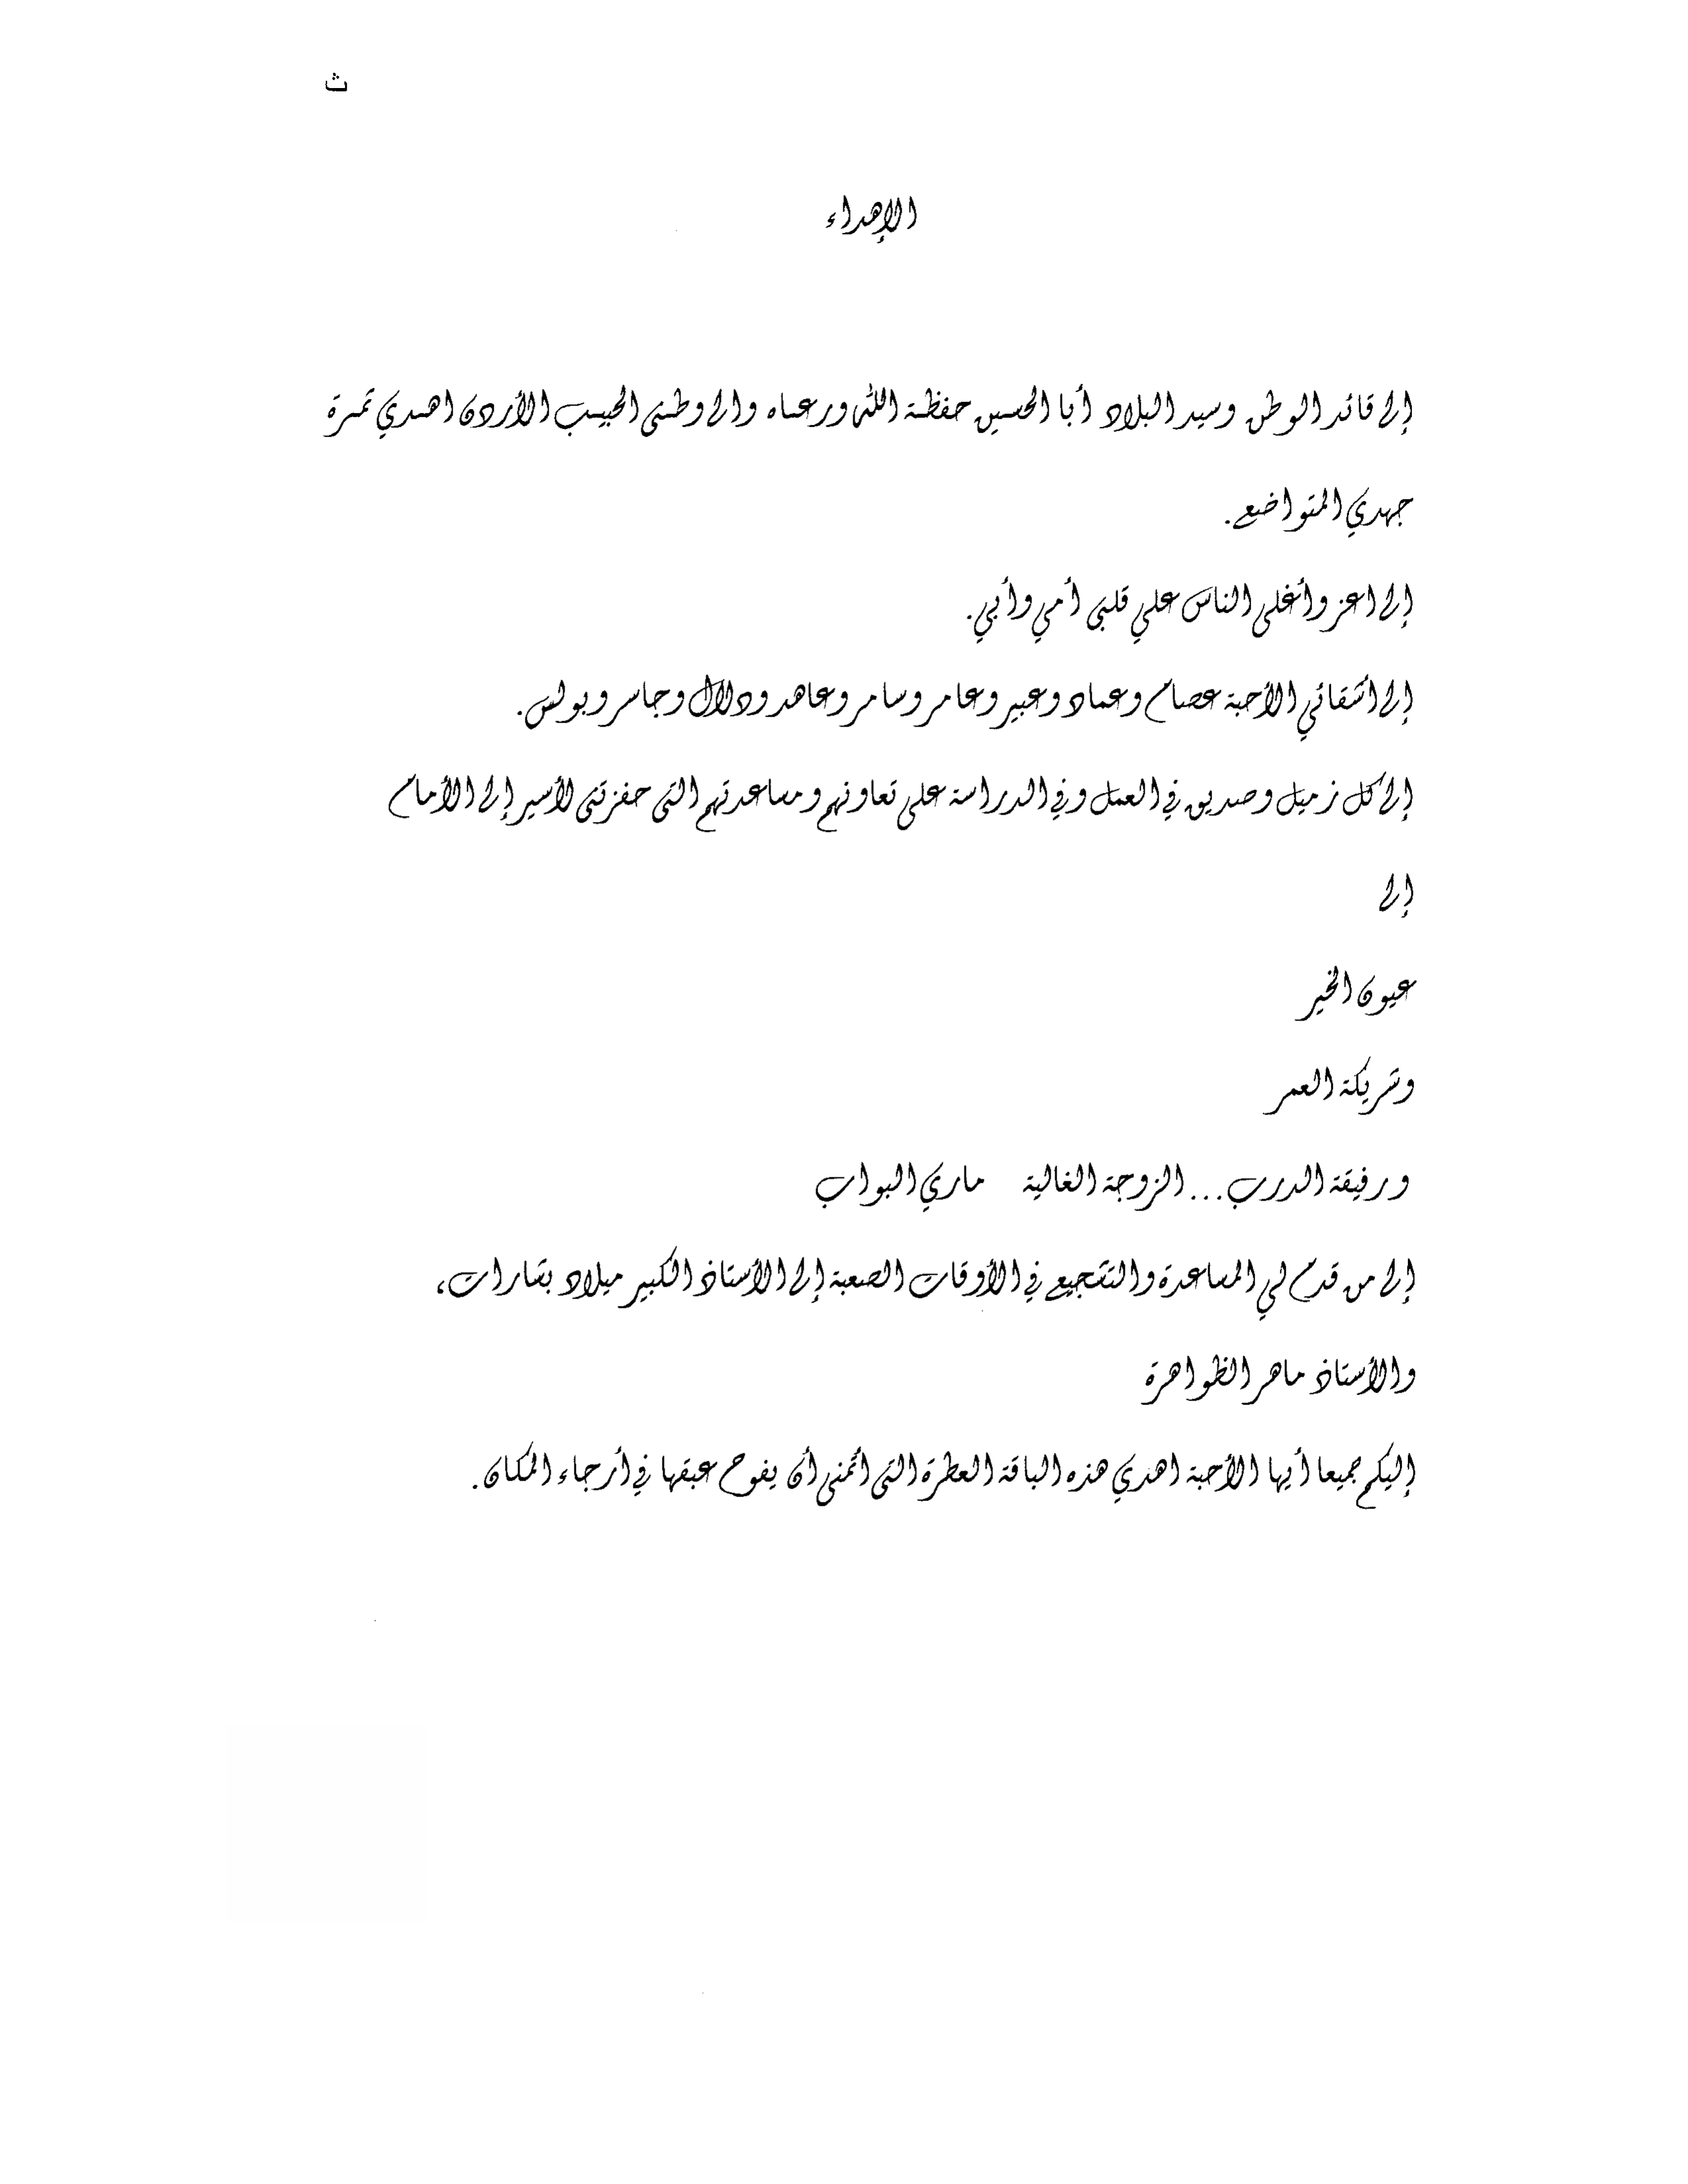 ث
الإهداء
إلى قائد الوطن وسيد البلاد أبا الحسين حفظة الله ورعاه والى وطني الحبيب الأردن اهدي ثمرة
جهدي المتواضع.
إلى اعز وأغلى الناس علي قلبي أمي وأبي.
إلى اشقائي الأحبة عصام وعماد وعبير وعامر وسامر وعاهد ودلال وجاسر وبولس.
إلى كل زميل وصديق في العمل وفي الدراسة على تعاونهم ومساعدتهم التي حفزتني لأسير إلى الأمام
إلى
عيون الخير
وشريكة العمر
ورفيقة الدرب... الزوجة الغالية ماري البواب
إلى من قدم لي المساعدة والتشجيع في الأوقات الصعبة إلى الأستاذ الكبير ميلاد بشارات،
والأستاذ ماهر الظواهرة
إليكم جميعا أيها الأحبة اهدي هذه الباقة العطرة التي أتمنى أن يفوح عبقها في أرجاء المكان.